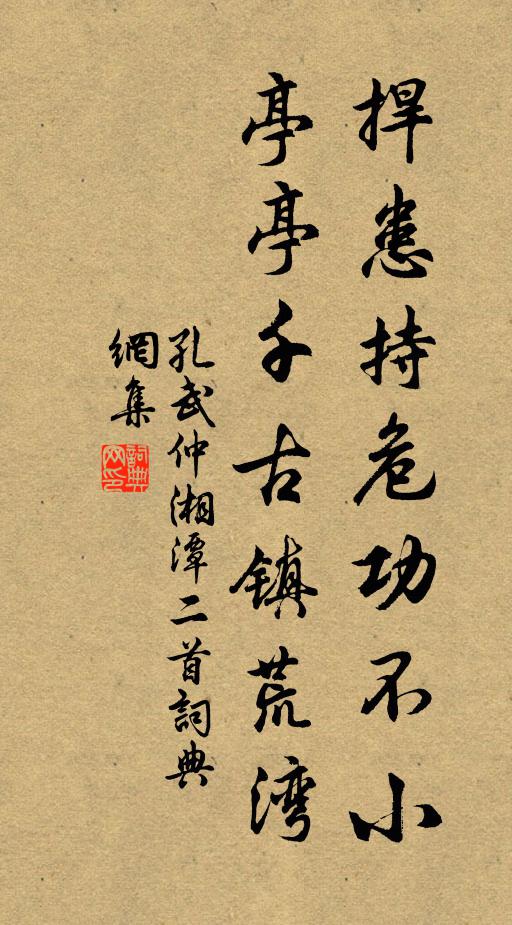 捍患持危功不小
亭亭千古镇荒湾
孔武仲湘潭二首詞典
網集
詞典
网印